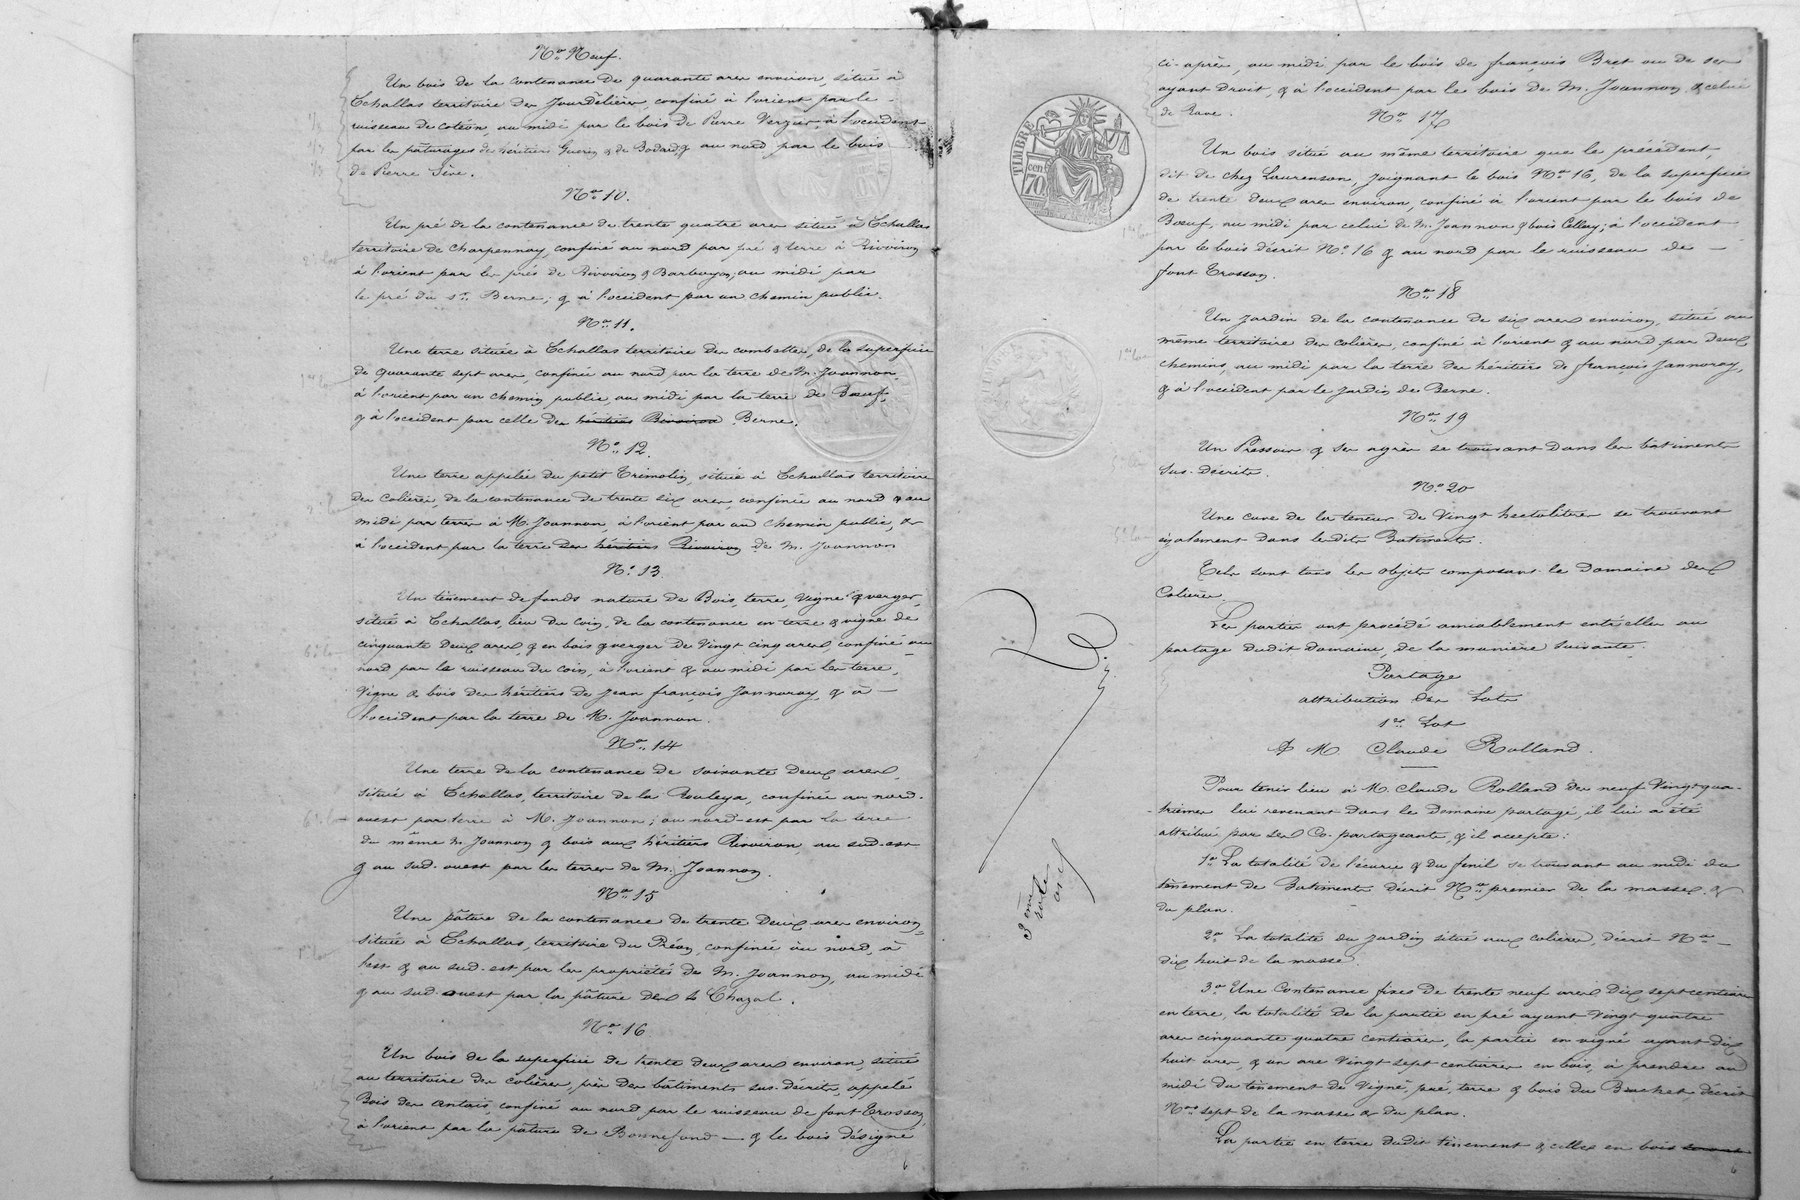 N.o Neuf.
Un bois de la contenance de quarante ares environ, situé à
Echallas territoire des Jourdelières, confiné à l'orient par le
ruisseau de Cotéon, au midi par le bois de Pierre Verzier, à l'occident
par les pâturages de héritiers Guerin & de Bodard, & au nord par le bois
de Pierre Sève.
N.o 10.
Un pré de la contenance de trente quatre ares situé à Echallas
territoire de Charpennay, confiné au nord par pré & terre à Rivoiron
à l'orient par les prés de Rivoiron & Barbeyon; au midi par
le pré du Sr. Berne; & à l'occident par un chemin public.
N.o 11.
Une terre située à Echallas territoire des combattes, de la superficie
de quarante sept ares, confinée au nord par la terre de M. Joannon,
à l'orient par un chemin public, au midi par la terre de Bœuf,
& à l'occident par celle des héritiers Rivoiron Berne.
N.o 12.
Une terre appelée du petit Trimolin, située à Echallas territoire
des Colières, de la contenance de trente six ares, confinée au nord & au
midi par terres à M. Joannon, à l'orient par un chemin public, &
à l'occident par la terre des héritiers Rivoiron de M. Joannon
N.o 13.
Un tènement de fonds nature de Bois, terre, Vigne & verger,
situé à Echallas, lieu du Coin, de la contenance en terre & vigne de
cinquante deux ares, & en bois & verger de Vingt cinq ares confiné au
nord par le ruisseau du Coin, à l'orient & au midi par les terre,
Vigne & bois des héritiers de Jean françois Jannoray, & à
l'occident par la terre de M. Joannon.
N.o 14
Une terre de la contenance de soixante deux ares,
située à Échallas, territoire de la Rouleya, confinée au nord-
ouest par terre à M. Joannon; au nord-est par la terre
du même M. Joannon & bois aux héritiers Rivoiron, au sud-est
& au sud-ouest par les terres de M. Joannon.
N.o 15
Une pâture de la contenance de trente deux ares environ,
située à Echallas, territoire du Préau, confinée au nord, à
l'est & au sud-est par les propriétés de M. Joannon, au midi
& au sud-ouest par la pâture de Chazal.
N.o 16
Un bois de la superficie de trente deux ares environ, situé
au territoire des colières, près des bâtiments sus-décrits, appelé
Bois des Antais, confiné au nord par le ruisseau de font Trosson,
à l'orient par la pâture de Bonnefond — & le bois désigné
ci-après, au midi par le bois de françois Bret ou de ses
ayant droit, & à l'occident par le bois de M. Joannon & celui
de Rave.
N.o 17
TIMBRE
70 cen
Un bois situé au même territoire que le précédent,
dit de chez Laurenson, joignant le bois N.o 16, de la superficie
de trente deux ares environ, confiné à l'orient par le bois de
Bœuf, au midi par celui de M. Joannon & bois Cellery; à l'occident
par le bois décrit N.o 16 & au nord par le ruisseau de —
font Trosson.
N.o 18
Un jardin de la contenance de six ares environ, situé au
même territoire des colières, confiné à l'orient & au nord par deux
chemins, au midi par la terre des héritiers de françois Jannoray,
& à l'occident par le jardin de Berne.
N.o 19
Un Pressoir & ses agrès se trouvant dans les bâtiments
sus-décrits.
N.o 20
Une cuve de la teneur de Vingt hectolitres se trouvant
également dans lesdits Batiments.
Tels sont tous les objets composant le Domaine des
Colières.
Les parties ont procédé amiablement entr'elles au
partage dudit domaine, de la manière suivante.
Partage
attribution des Lots
1er Lot
à M Claude Rolland.
Pour tenir lieu à M. Claude Rolland des neuf Vingt-qua-
-trièmes lui revenant dans le Domaine partagé, il lui a été
attribué par ses Co-partageants, & il accepte:
1o La totalité de l'écurie & du fenil se trouvant au midi du
tènement de Batiments décrit N.o premier de la masse &
du plan.
2o La totalité du jardin situé aux colières, décrit N.o —
dix huit de la masse.
3o Une Contenance fixe de trente neuf ares dix sept centiares
en terre, la totalité de la partie en pré ayant Vingt quatre
ares cinquante quatre centiares, la partie en vigne ayant dix
huit ares, & un are Vingt sept centiares en bois, à prendre au
midi du tènement de Vigne, pré, terre & bois du Brachet décrit
N.o sept de la masse & du plan.
La partie en terre dudit tènement & celles en bois
3ème rôle